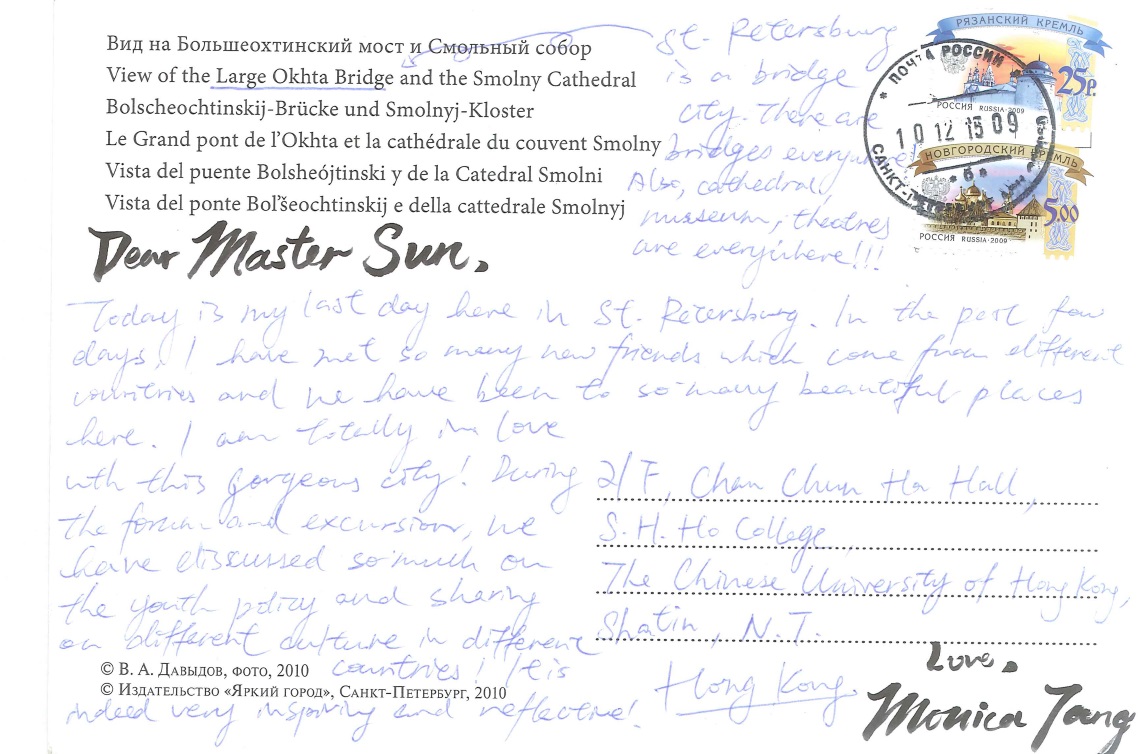 Вид на Большеохтинский мост и Смольный собор
View of the Large Okhta Bridge and the Smolny Cathedral
Bolscheochtinskij-Brücke und Smolnyj-Kloster
Le Grand pont de l’Okhta et la cathédrale du couvent Smolny
Vista del puente Bolsheójtinski y de la Catedral Smolni
Vista del ponte Bol’šeochtinskij e della cattedrale Smolnyj
St. Petersburg
is a bridge
city. There are
bridges everywhere!
Also, cathedral,
museum, theatres
are everywhere!!!
РЯЗАНСКИЙ КРЕМЛЬ
25р.
РОССИЯ RUSSIA·2009
ПОЧТА РОССИИ
10 12 15 09
САНКТ-ПЕТЕРБУРГ
НОВГОРОДСКИЙ КРЕМЛЬ
5.00
РОССИЯ RUSSIA·2009
Dear Master Sun,
Today is my last day here in St. Petersburg. In the past few
days, I have met so many new friends which come from different
countries and we have been to so many beautiful places
here. I am totally in love
with this gorgeous city! During
the forum and excursion, we
have discussed so much on
the youth policy and sharing
on different culture in different
countries! It is
indeed very inspiring and reflective!
2/F, Chan Chun Ha Hall,
S.H. Ho College,
The Chinese University of Hong Kong,
Shatin, N.T.
Hong Kong.
Love,
Monica Tang
© В. А. Давыдов, фото, 2010
© Издательство «Яркий город», Санкт-Петербург, 2010